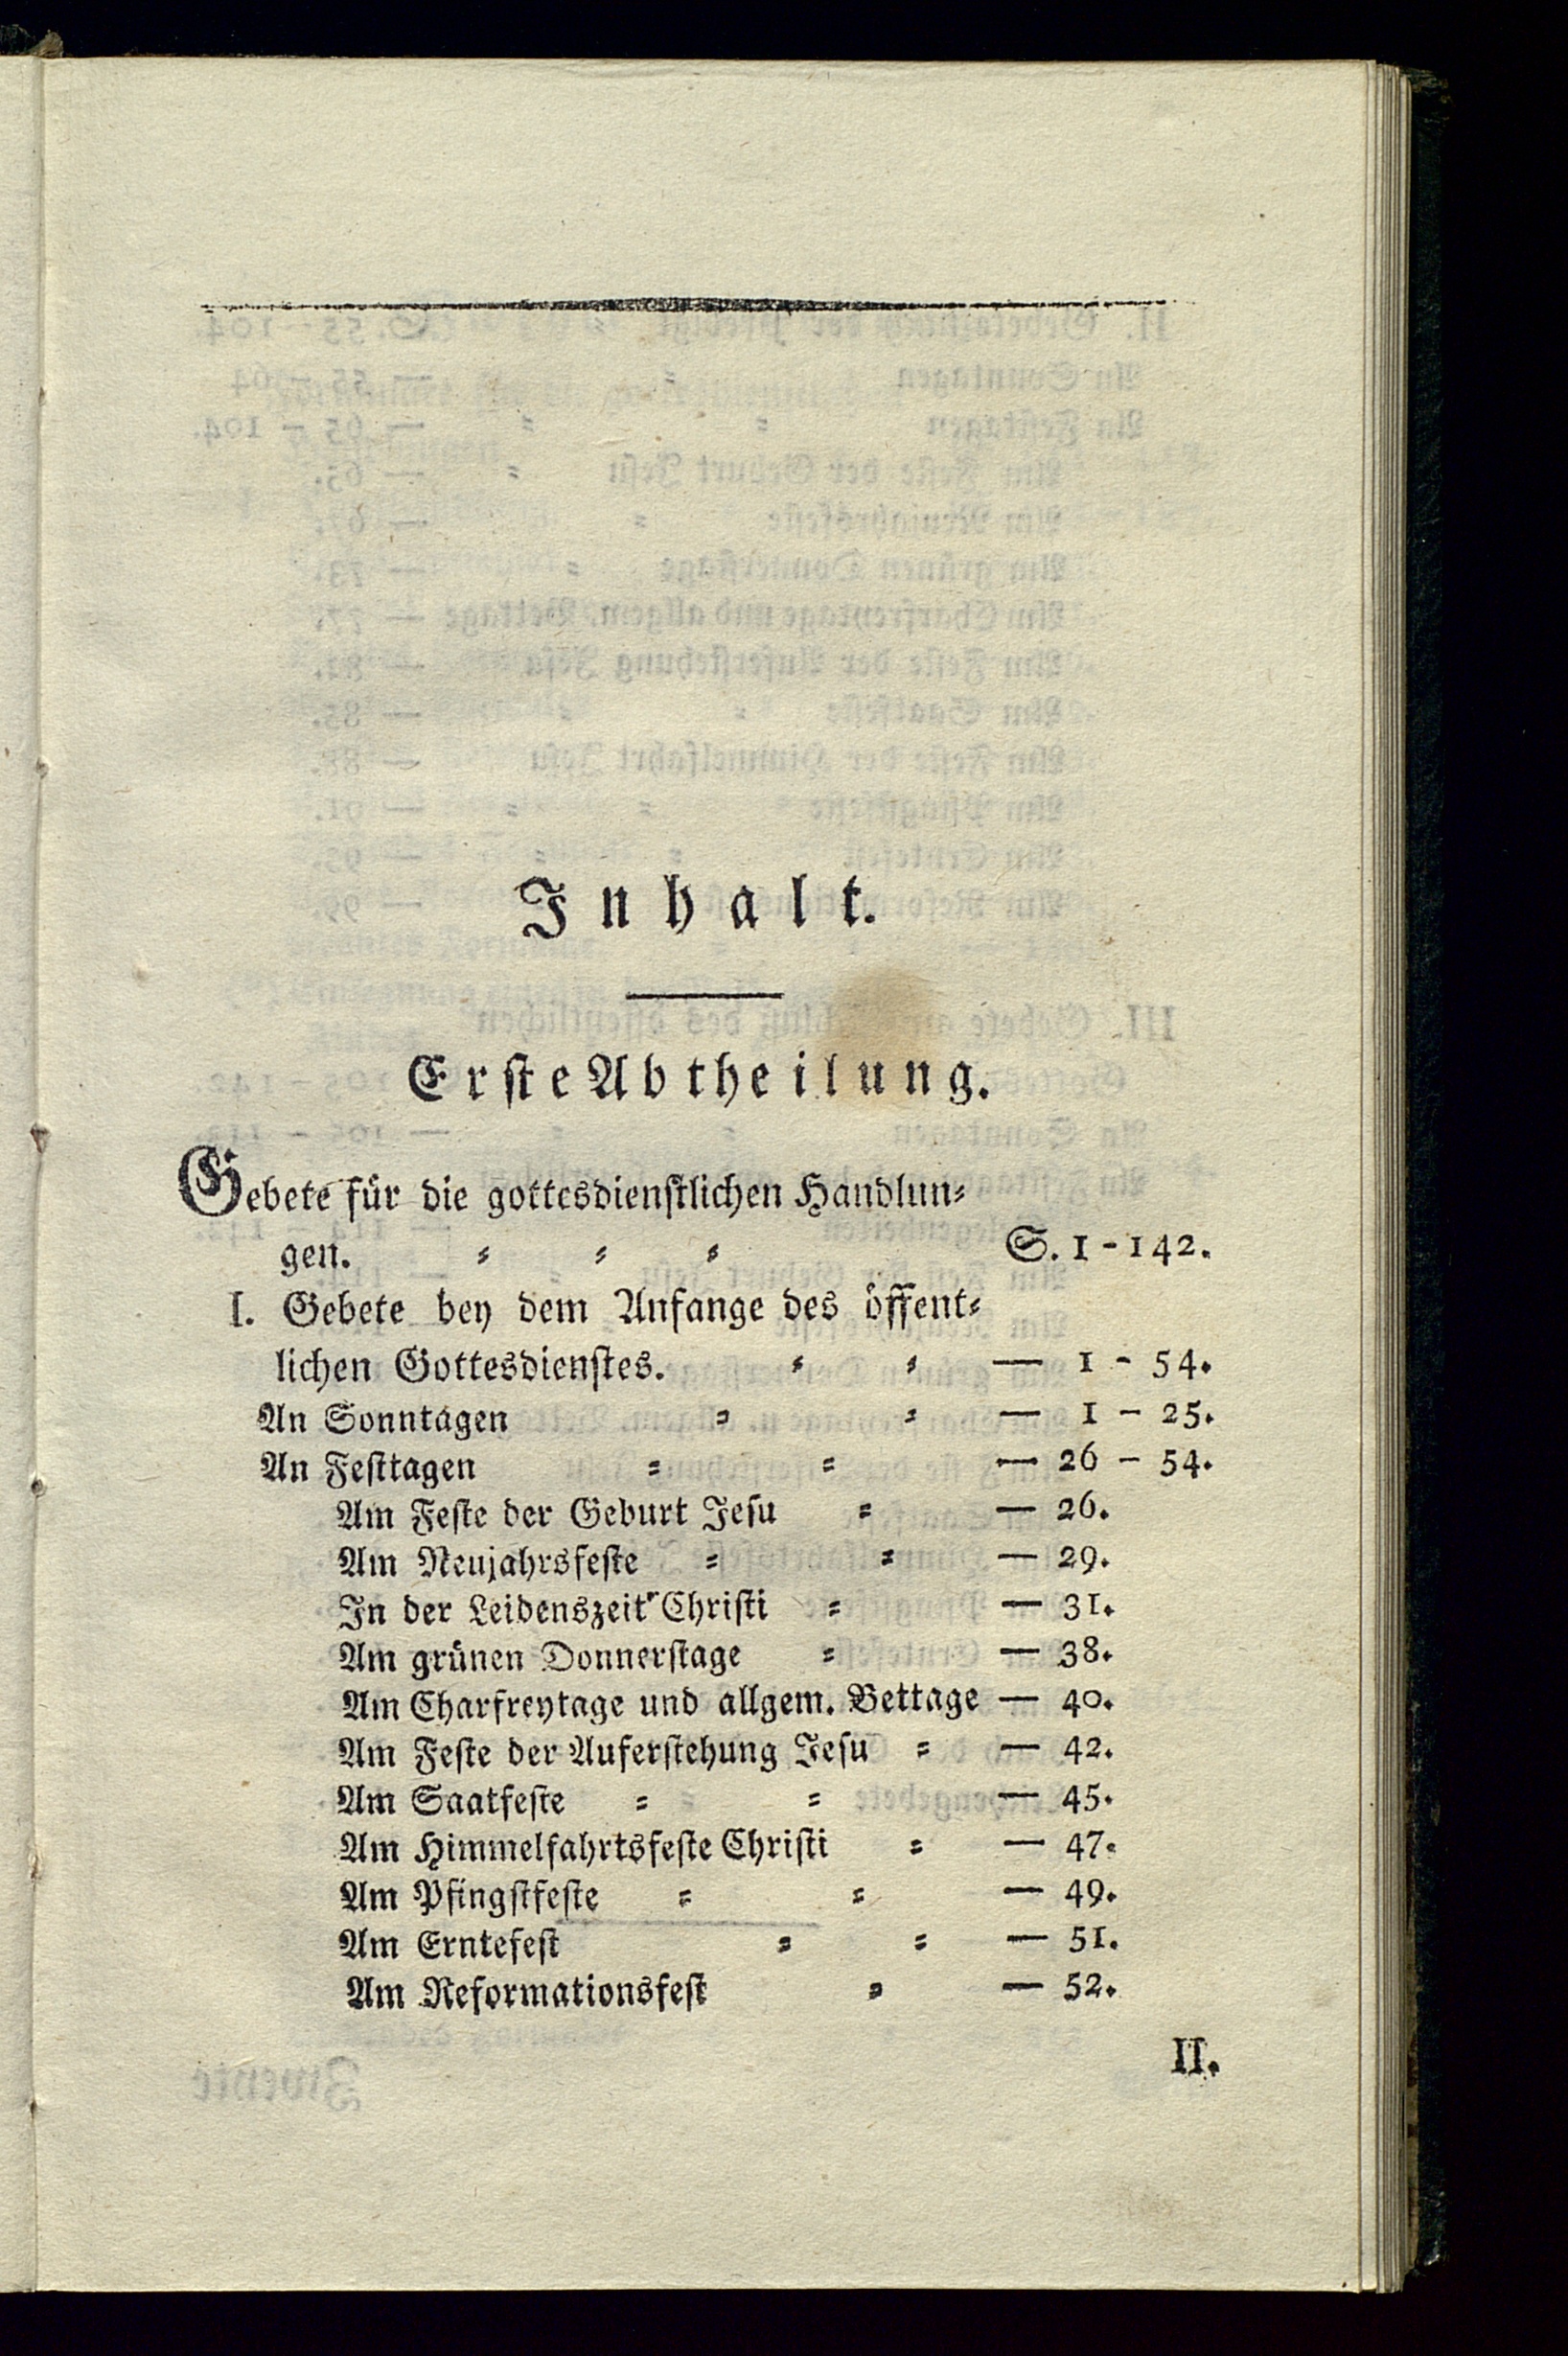 Inhalt.
Erste Abtheilung.
Gebete für die gottesdienstlichen Handlun⸗
gen. ⸗ ⸗ ⸗ S. 1 - 142.
I. Gebete bey dem Anfange des öffent⸗
lichen Gottesdienstes. ⸗ ⸗ — 1 - 54.
An Sonntagen ⸗ ⸗ — 1 - 25.
An Festtagen ⸗ ⸗ — 26 - 54.
Am Feste der Geburt Jesu ⸗ — 26.
Am Neujahrsfeste ⸗ ⸗ — 29.
In der Leidenszeit Christi ⸗ — 31.
Am grünen Donnerstage ⸗ — 38.
Am Charfreytage und allgem. Bettage — 40.
Am Feste der Auferstehung Jesu ⸗ — 42.
Am Saatfeste ⸗ ⸗ — 45.
Am Himmelfahrtsfeste Christi ⸗ — 47.
Am Pfingstfeste ⸗ ⸗ — 49.
Am Erntefest ⸗ ⸗ — 51.
Am Reformationsfest ⸗ — 52.
II.